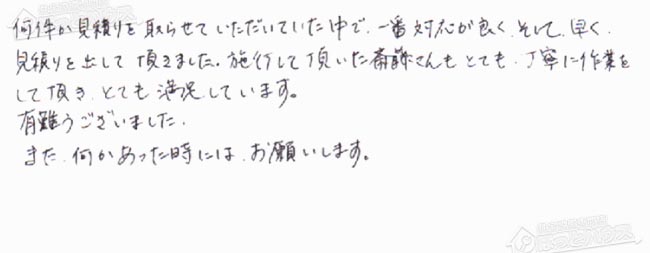 何件か見積りを取らせていただいていた中で、一番対応が良く、そして、早く、
見積りを出して頂きました。施行して頂いた斎藤さんもとても、丁寧に作業を
して頂き、とても満足しています。
有難うございました。
また、何かあった時には、お願いします。